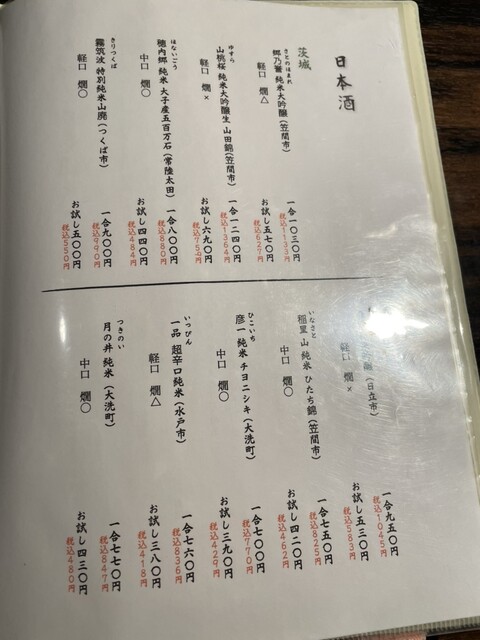 日本酒
茨城
さとのほまれ
郷乃譽 純米大吟醸(笠間市)
軽口 燗△
一合一〇三〇円
税込1133円
お試し五七〇円
税込627円
ゆすら
山桃桜 純米大吟醸生 山田錦(笠間市)
軽口 燗×
一合一二四〇円
税込1364円
お試し六九〇円
税込759円
はないごう
穂内郷 純米 大子産五百万石(常陸太田)
中口 燗〇
一合八〇〇円
税込880円
お試し四四〇円
税込484円
きりつくば
霧筑波 特別純米山廃(つくば市)
軽口 燗〇
一合九〇〇円
税込990円
お試し五〇〇円
税込550円
(日立市)
軽口 燗×
一合九五〇円
税込1045円
お試し五三〇円
税込583円
いなさと
稲里 山 純米 ひたち錦(笠間市)
中口 燗〇
一合七五〇円
税込825円
お試し四二〇円
税込462円
ひこいち
彦一 純米 チヨニシキ(大洗町)
中口 燗〇
一合七〇〇円
税込770円
お試し三九〇円
税込429円
いっぴん
一品 超辛口純米(水戸市)
軽口 燗△
一合七六〇円
税込836円
お試し三八〇円
税込418円
つきのい
月の井 純米(大洗町)
中口 燗〇
一合七七〇円
税込847円
お試し四三〇円
税込480円